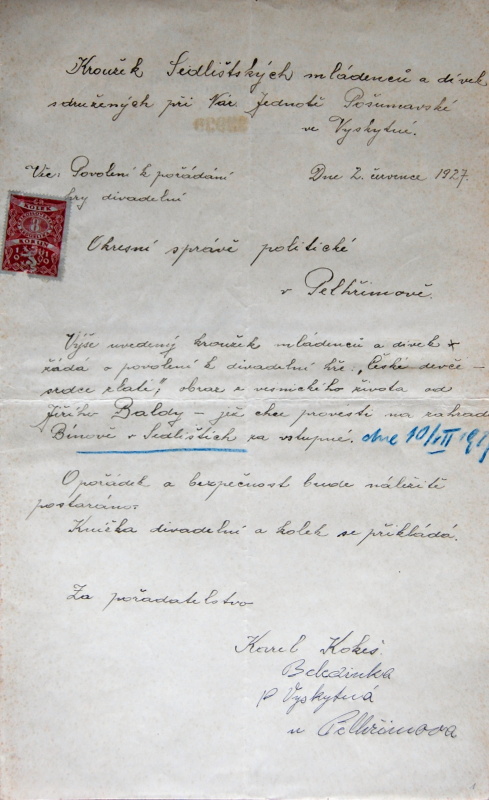 Kroužek Sedlištských mládenců a dívek
sdružených při Nár. Jednotě Pošumavské
ve Vyskytné.
Věc: Povolení k pořádání
hry divadelní
Dne 2. července 1927.
KOLEK
Okresní správě politické
v Pelhřimově.
Výše uvedený kroužek mládenců a dívek
žádá o povolení k divadelní hře: „České děvče –
srdce zlaté", obraz z vesnického života od
Jiřího Baldy – jež chce provésti na zahradě
Bínově v Sedlištích za vstupné. dne 10/VII
O pořádek a bezpečnost bude náležitě
postaráno.
Knížka divadelní a kolek se přikládá.
Za pořadatelstvo
Karel Kokeš.
P Vyskytná
u Pelhřimova